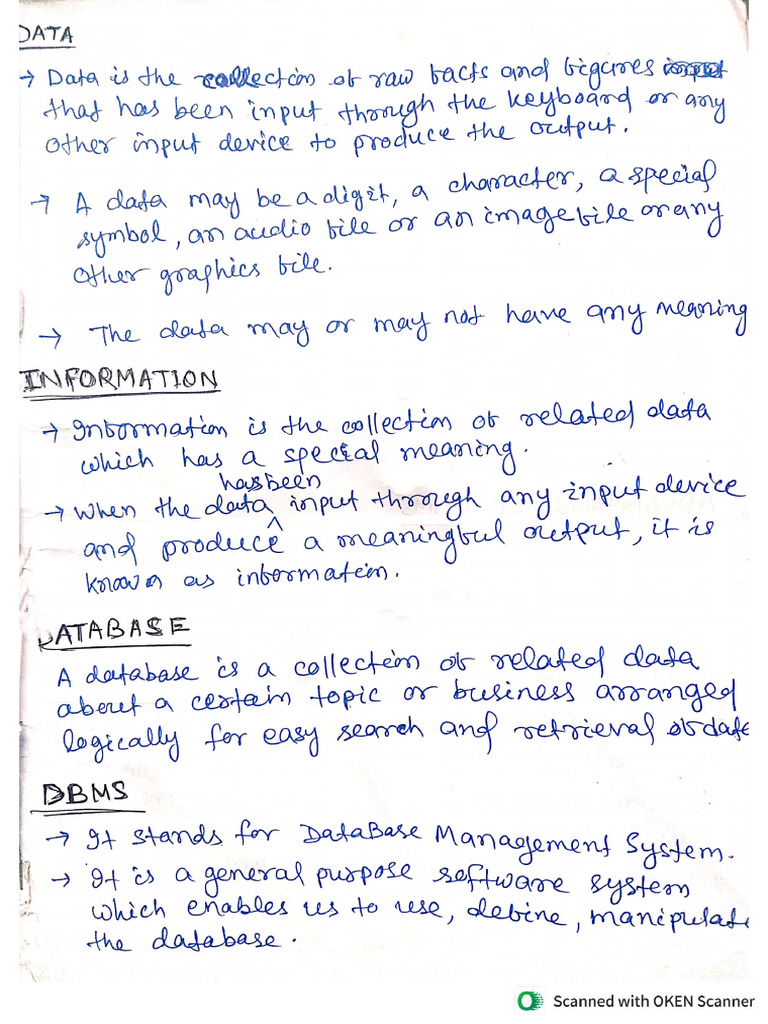 DATA
→ Data is the collection of raw facts and figures
that has been input through the keyboard or any
other input device to produce the output.
→ A data may be a digit, a character, a special
symbol, an audio file or an image file or any
other graphics file.
→ The data may or may not have any meaning
INFORMATION
→ Information is the collection of related data
which has a special meaning.
has been
→ When the data ^ input through any input device
and produce a meaningful output, it is
known as information.
DATABASE
A database is a collection of related data
about a certain topic or business arranged
logically for easy search and retrieval of data
DBMS
→ It stands for DataBase Management System.
→ It is a general purpose software system
which enables us to use, define, manipulate
the database.
Scanned with OKEN Scanner